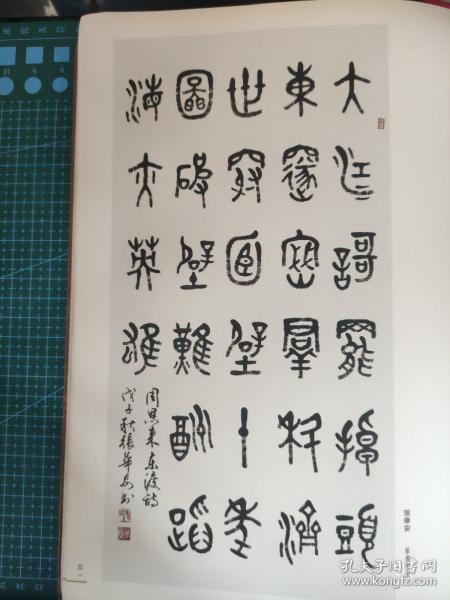 大江謌罷掉頭
東邃密羣科濟
世窮面壁十年
圖破壁難酬蹈
海亦英雄
周恩來東渡詩
戊子秋張華安書
張華安 篆書
四一
孔夫子旧书网